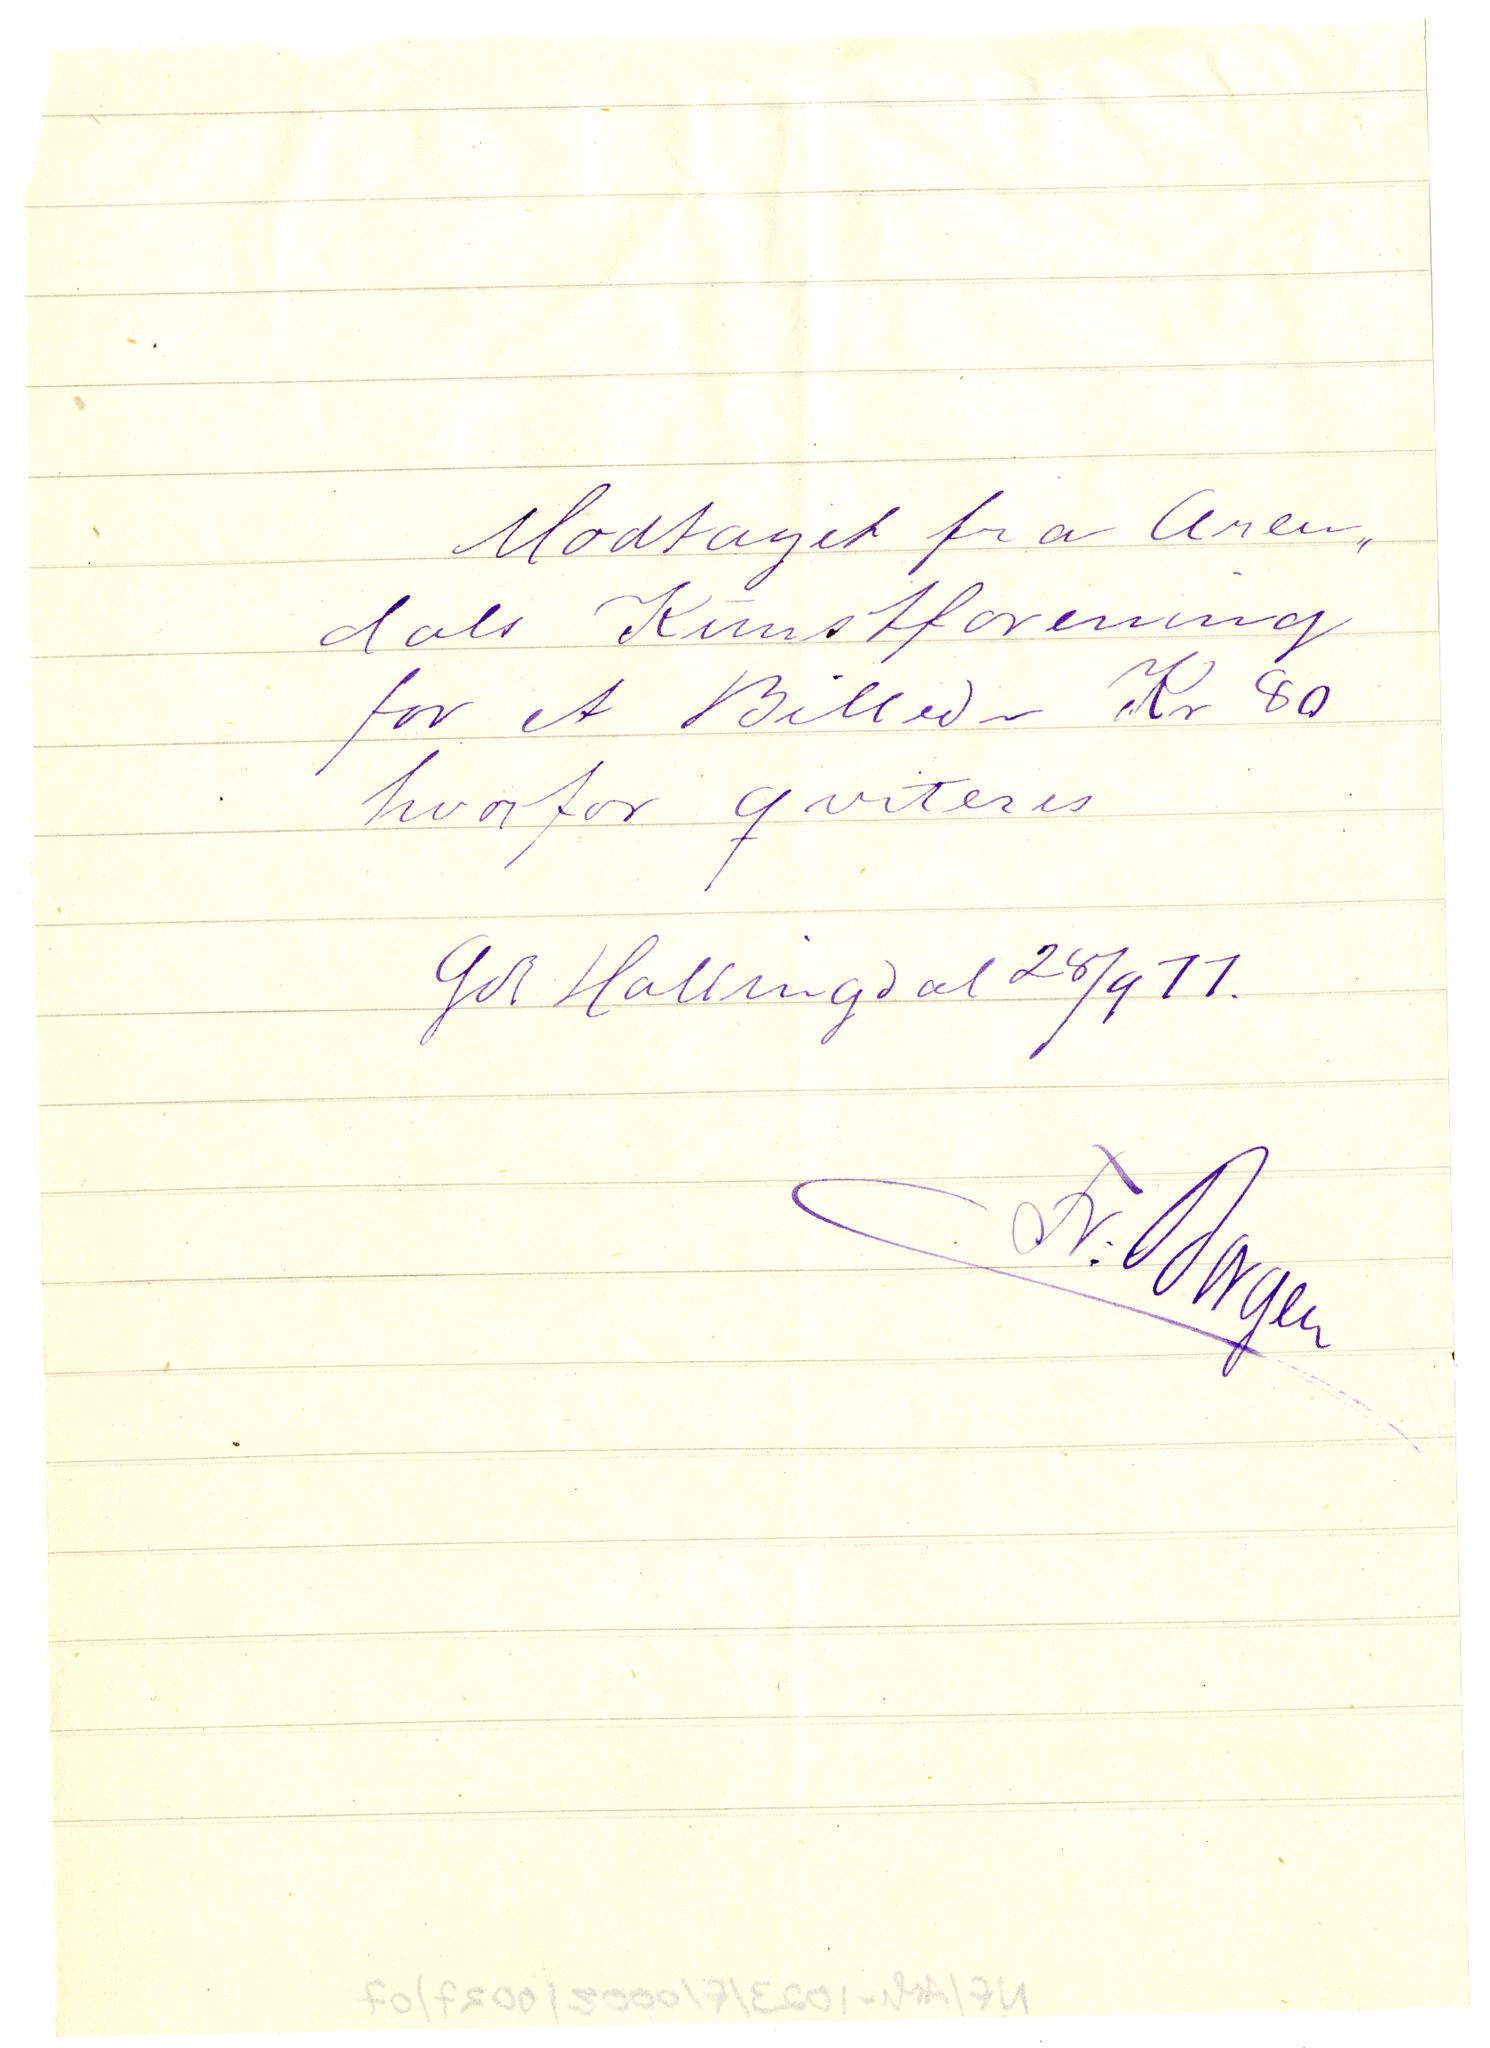 Modtaget fra Aren„
dals Kunstforening
for et Billede Kr 80
hvorfor qviteres
Gol Hallingdal 28/9 11.
Fr. Borgen
NF/Ark-1023/F/0002/0027/07